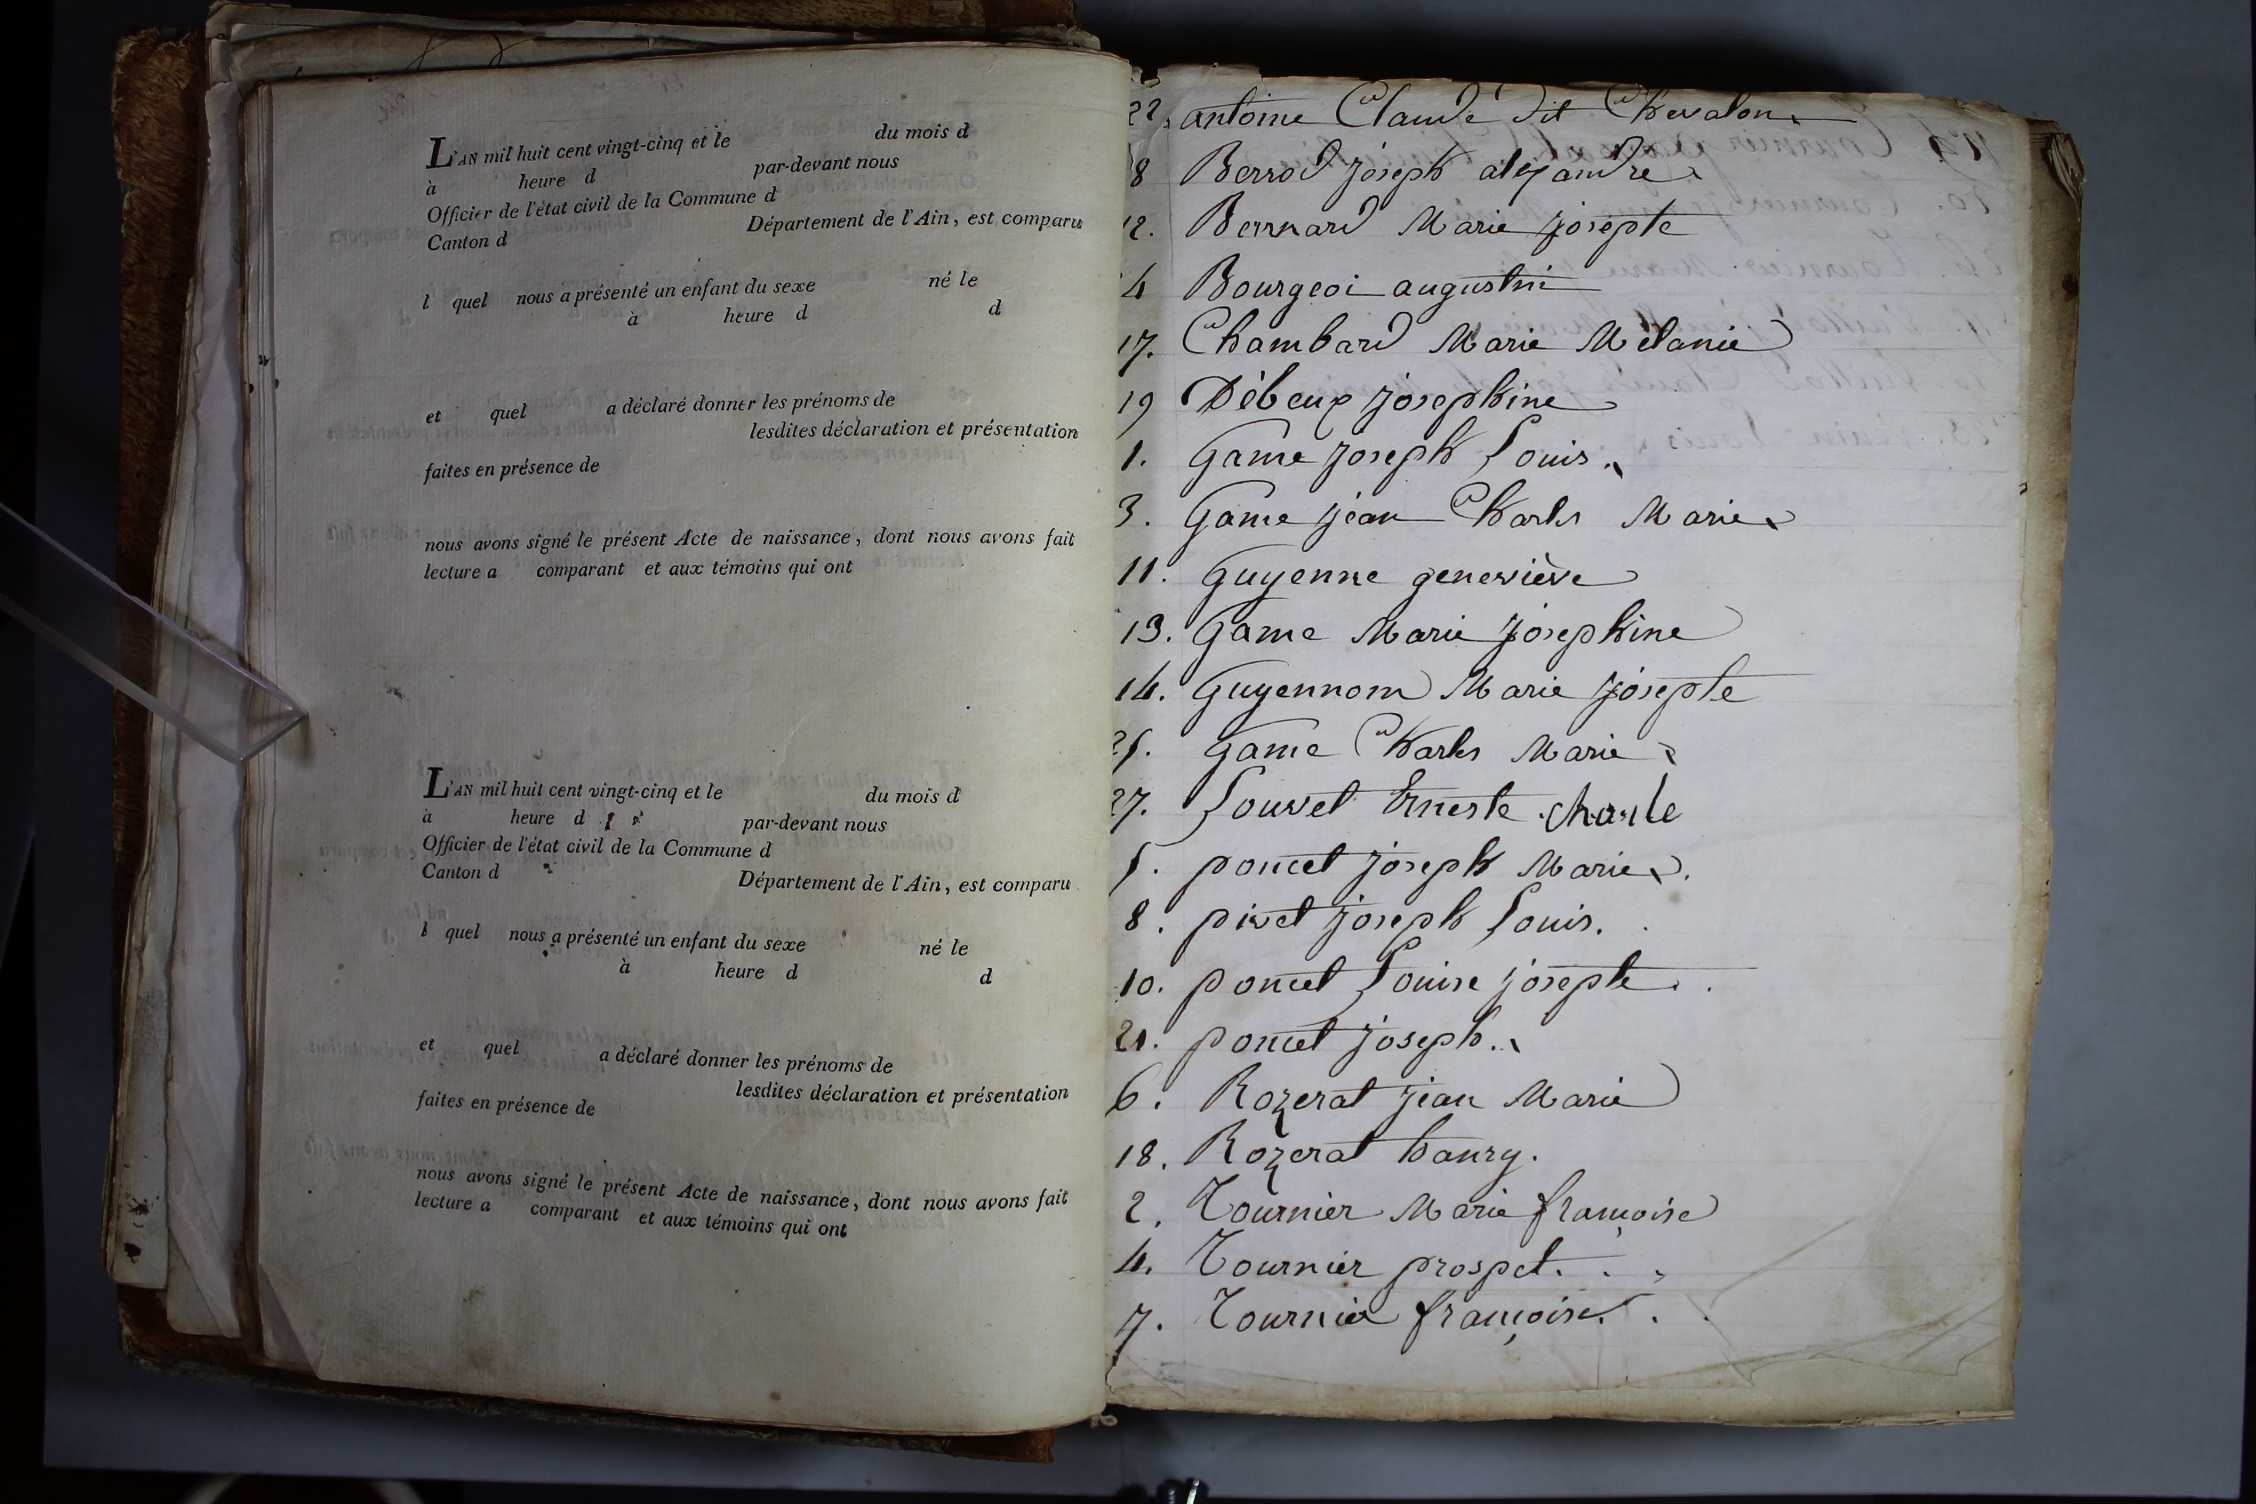 L'AN mil huit cent vingt-cinq et le du mois d
à heure d par-devant nous
Officier de l'état civil de la Commune d
Canton d Département de l'Ain, est comparu
l quel nous a présenté un enfant du sexe né le
à heure d d
et quel a déclaré donner les prénoms de
lesdites déclaration et présentation
faites en présence de
nous avons signé le présent Acte de naissance, dont nous avons fait
lecture a comparant et aux témoins qui ont
L'AN mil huit cent vingt-cinq et le du mois d
à heure d par-devant nous
Officier de l'état civil de la Commune d
Canton d Département de l'Ain, est comparu
l quel nous a présenté un enfant du sexe né le
à heure d d
et quel a déclaré donner les prénoms de
lesdites déclaration et présentation
faites en présence de
nous avons signé le présent Acte de naissance, dont nous avons fait
lecture a comparant et aux témoins qui ont
22 antoine Claude dit Chevalon
8 Berrod joseph alexandre
12. Berrnard Marie josepte
Bourgeoi augustin
17. Chambard Marie Melanie
19 Débeux josephine
1. Game joseph Louis
3. Game jean Charles Marie
11. Guyenne geneviève
13. Game Marie josephine
14. Guyennom Marie josepte
Game Charles Marie
27. Louvet Erneste Charle
5. poncet joseph Marie
8. pivet joseph Louis.
10. poncet Louise josepte
21. poncet joseph
6. Rozerat jean Marie
18. Rozerat hanry.
2. Tournier Marie françoise
4. Tournier prospet
7. Tournier françoise